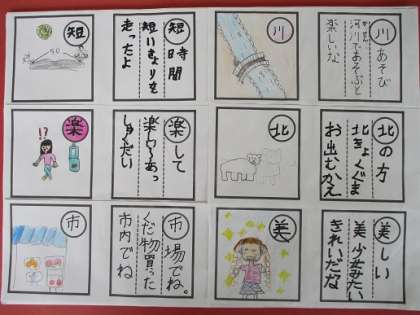 川あそび
河川であそぶと
かせん
楽しいな
川
短時間
短いきょりを
走ったよ
短
北の方
北きょくぐま
お出むかえ
北
楽して
しゅくだい
楽
!?
美しい
美少女みたい
きれいだな
美
市場でね。
くだ物買った
市内でね
市